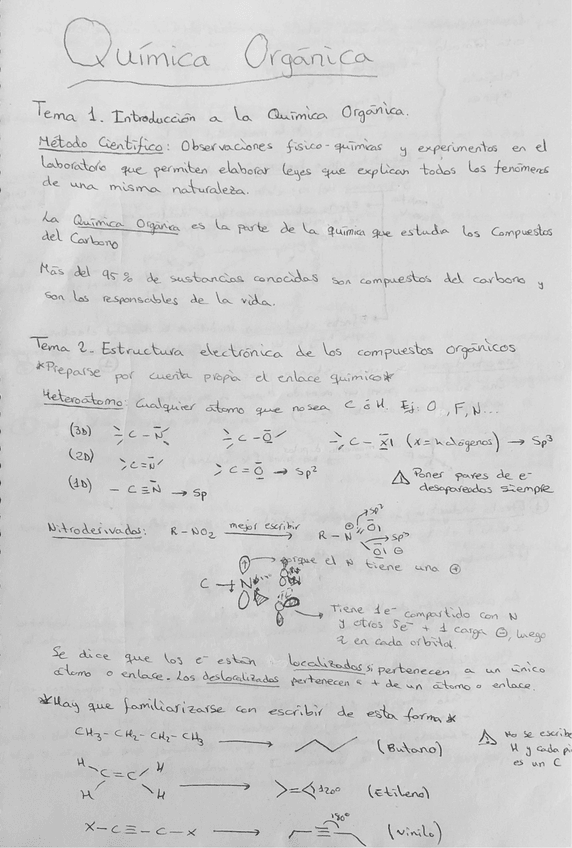 Química Orgánica
Tema 1. Introducción a la Química Orgánica.
Método Científico: Observaciones físico-químicas y experimentos en el
laboratorio que permiten elaborar leyes que explican todos los fenómenos
de una misma naturaleza.
La Química Ogánica es la parte de la química que estudia los Compuestos
del Carbono
Más del 95% de sustancias conocidas son compuestos del carbono y
son los responsables de la vida.
Tema 2. Estructura electrónica de los compuestos orgánicos
*Preparse por cuenta propia el enlace químico*
Heteroátomo: Cualquier átomo que no sea C ó H. Ej: O, F, N...
(3D) C - N C - O - C - X (x = halógenos) → Sp³
(2D) C = N C = O → Sp²
(1D) - C ≡ N → Sp
⚠ Poner pares de e-
desapareados siempre
Nitroderivados: R - NO2 mejor escribir → R - N ⊕ O O ⊖ sp² sp³
porque el N tiene una ⊕
C N
→ Tiene 1e- compartido con N
y otros 5e- + 1 carga ⊖, luego
2 en cada orbital.
Se dice que los e- están localizados si pertenecen a un único
átomo o enlace. Los deslocalizados pertenecen a + de un átomo o enlace.
*Hay que familiarizarse con escribir de esta forma*
CH3 - CH2 - CH2 - CH3 → (Butano)
⚠ No se escribe
H y cada
es un C
H H C = C H H → 120° (Etileno)
X - C ≡ C - X → 180° (vinilo)